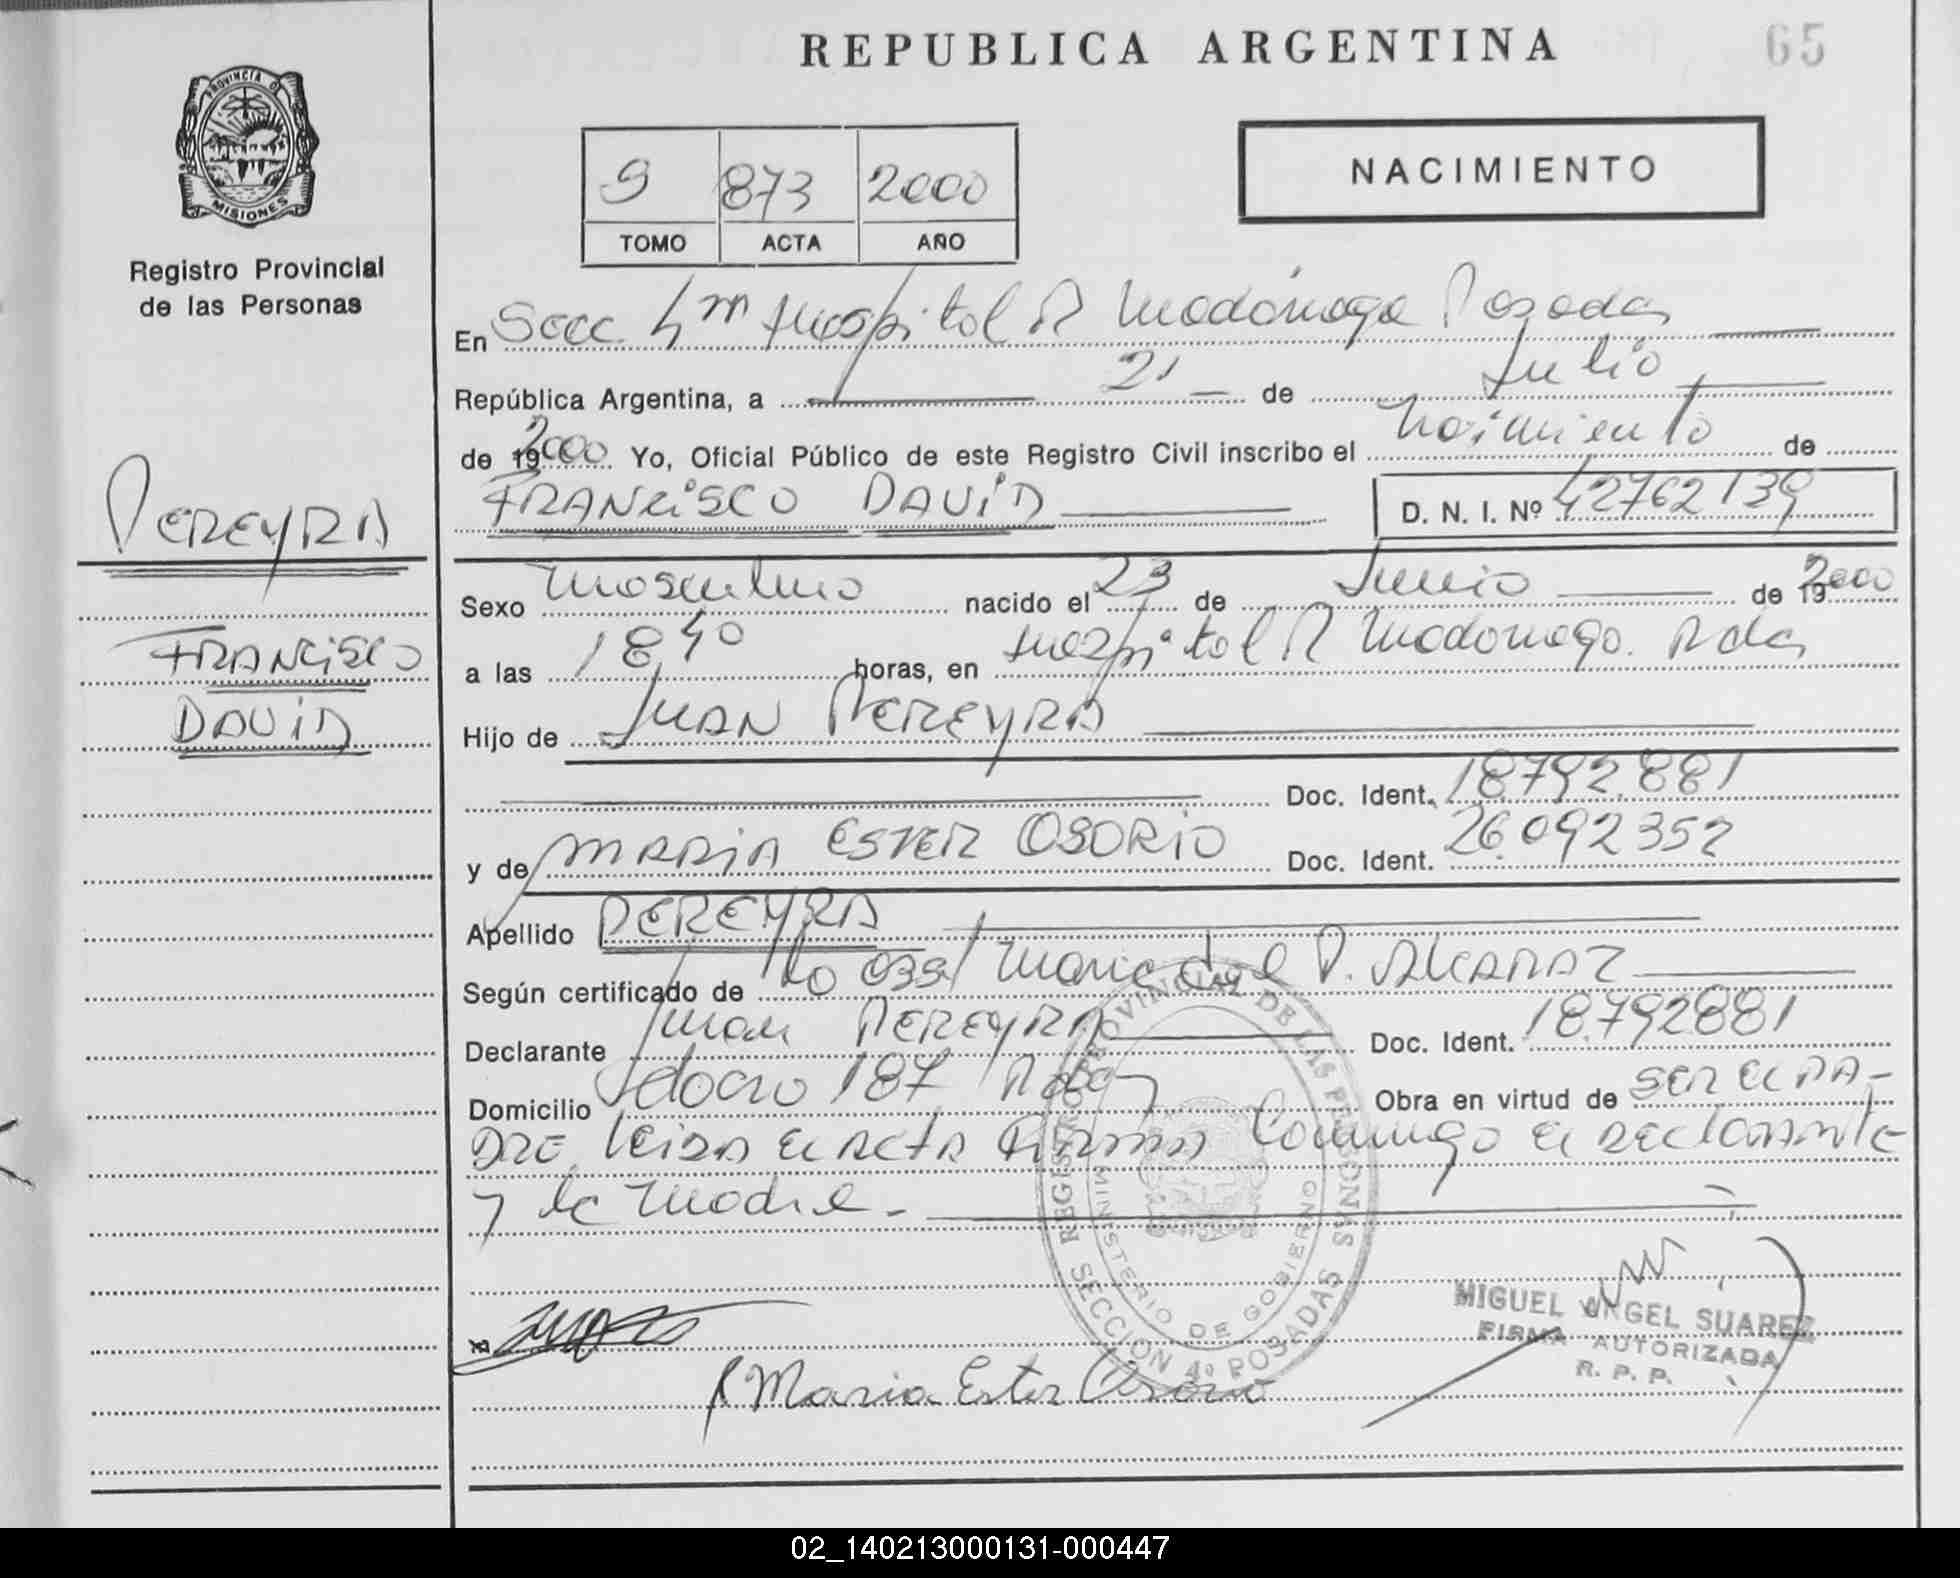 REPUBLICA ARGENTINA
65
PROVINCIA D
MISIONES
Registro Provincial
de las Personas
9 873 2000
TOMO ACTA AÑO
NACIMIENTO
En Secc 4ta Hospital R Madariaga Posadas
República Argentina, a 21 de Julio
de 192000 Yo, Oficial Público de este Registro Civil inscribo el Nacimiento de
FRANCISCO DAVID
D. N. I. Nº 42762139
PEREYRA
FRANCISCO
DAVID
Sexo Masculino nacido el 23 de Junio de 192000
a las 18,40 horas, en Hospital R Madariaga. Pdas
Hijo de JUAN PEREYRA
Doc. Ident. 18792.881
y de MARIA ESTER OSORIO Doc. Ident. 26.092352
Apellido PEREYRA
Según certificado de Maria del P. Alcaraz
Declarante Juan PEREYRA Doc. Ident. 18.792881
Domicilio 187 Pdas Obra en virtud de SER EL PA-
DRE. LEIDA EL ACTA FIRMA Conmigo el declarante
y la Madre.-
REGISTRO PROVINCIAL DE LAS PERSONAS
MINISTERIO DE GOBIERNO
SECCION 4ª POSADAS
MIGUEL ANGEL SUAREZ
FIRMA AUTORIZADA
R. P. P.
Maria Ester Osorio
02_140213000131-000447